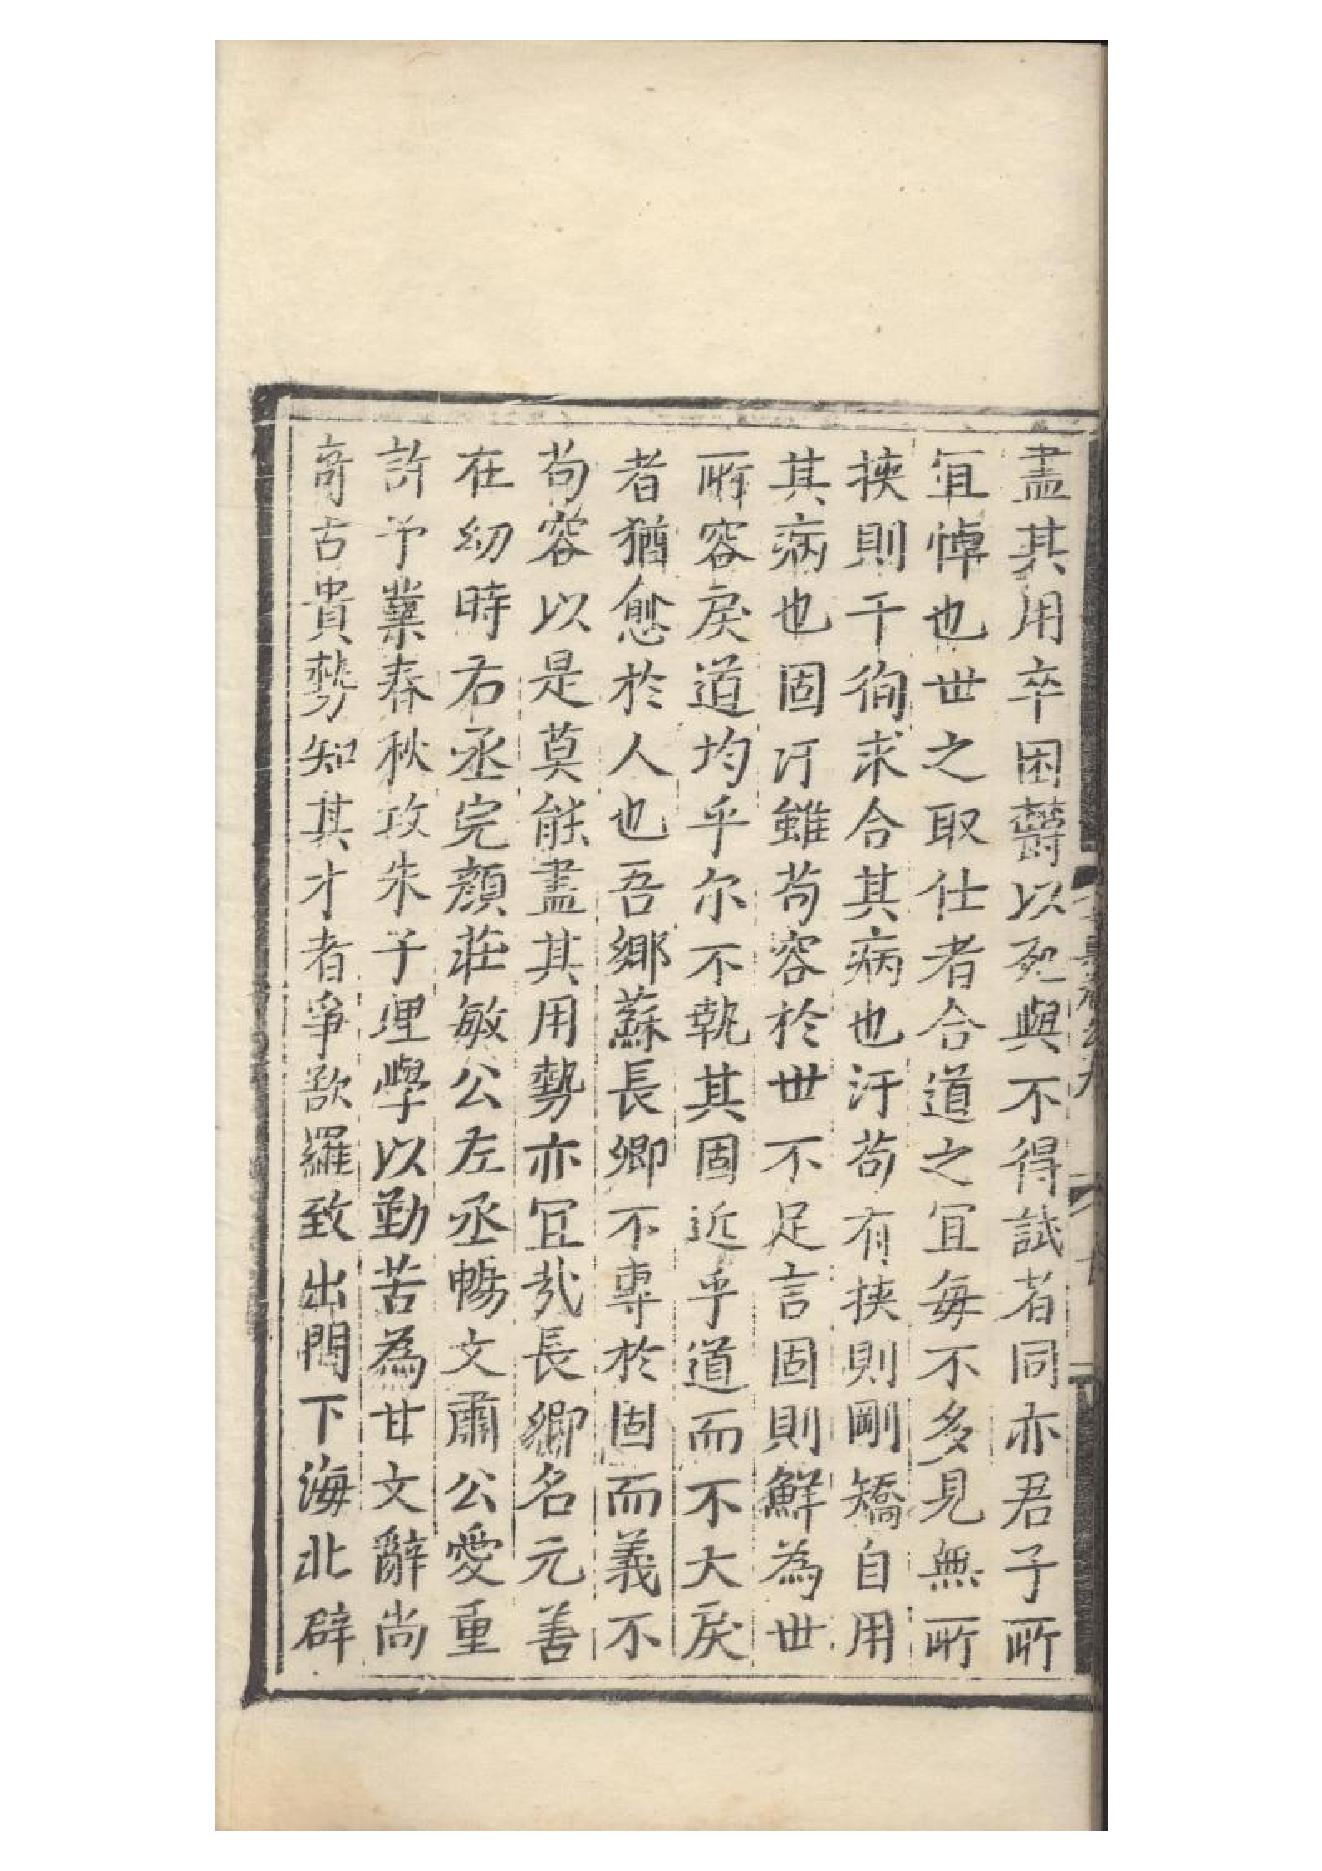 盡其用卒困欝以死與不得試者同亦君子所
冝悼也世之取仕者合道之冝每不多見無所
挾則干徇求合其病也汙苟有挾則剛矯自用
其病也固汙雖苟容於世不足言固則鮮為世
所容戾道均乎尔不執其固近乎道而不大戾
者猶愈於人也吾鄉蘇長卿不專於固而義不
苟容以是莫能盡其用勢亦冝㦲長卿名元善
在幼時右丞完顏莊敏公左丞暢文肅公愛重
許予業春秋攻朱子理學以勤苦為甘文辭尚
奇古貴勢知其才者爭欲羅致出門下海北辟